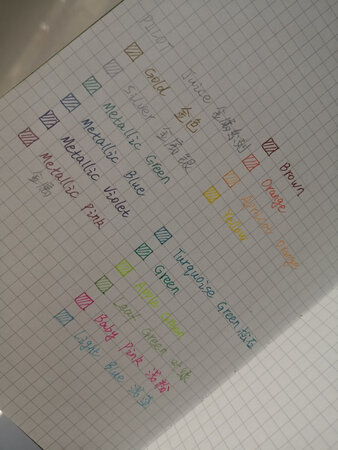 PILOT Juice 金属系列
Gold 金色
Silver 金属银
Metallic Green
Metallic Blue
Metallic Violet
Metallic Pink
金属
Brown
Orange
Apricot Orange
Yellow
Turquoise Green 松石
Green
Apple Green
Leaf Green 叶绿
Baby Pink 浅粉
Light Blue 浅蓝